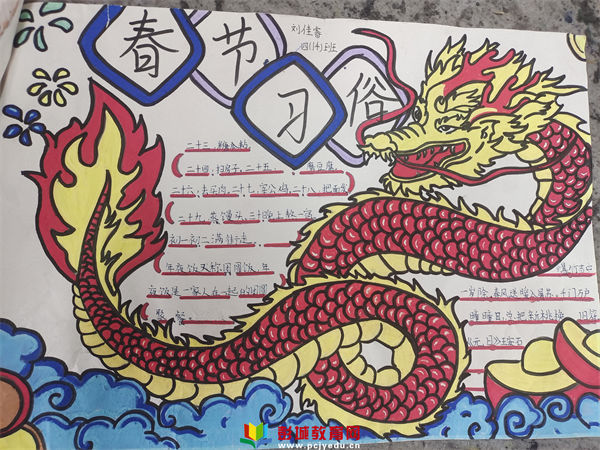 春节习俗
刘佳睿
四(14)班
二十三，糖瓜粘，
二十四，扫房子，二十五，磨豆腐，
二十六，去买肉，二十七，宰公鸡，二十八，把面发
二十九，蒸馒头，三十晚上熬一宿
初一初二满街走，
年夜饭又称团圆饭，年
夜饭是一家人在一起的团圆
聚餐
一岁除，春风送暖入屠苏，千门万户
曈曈日，总把新桃换旧符
王安石
彭城教育网
www.pcjyedu.cn